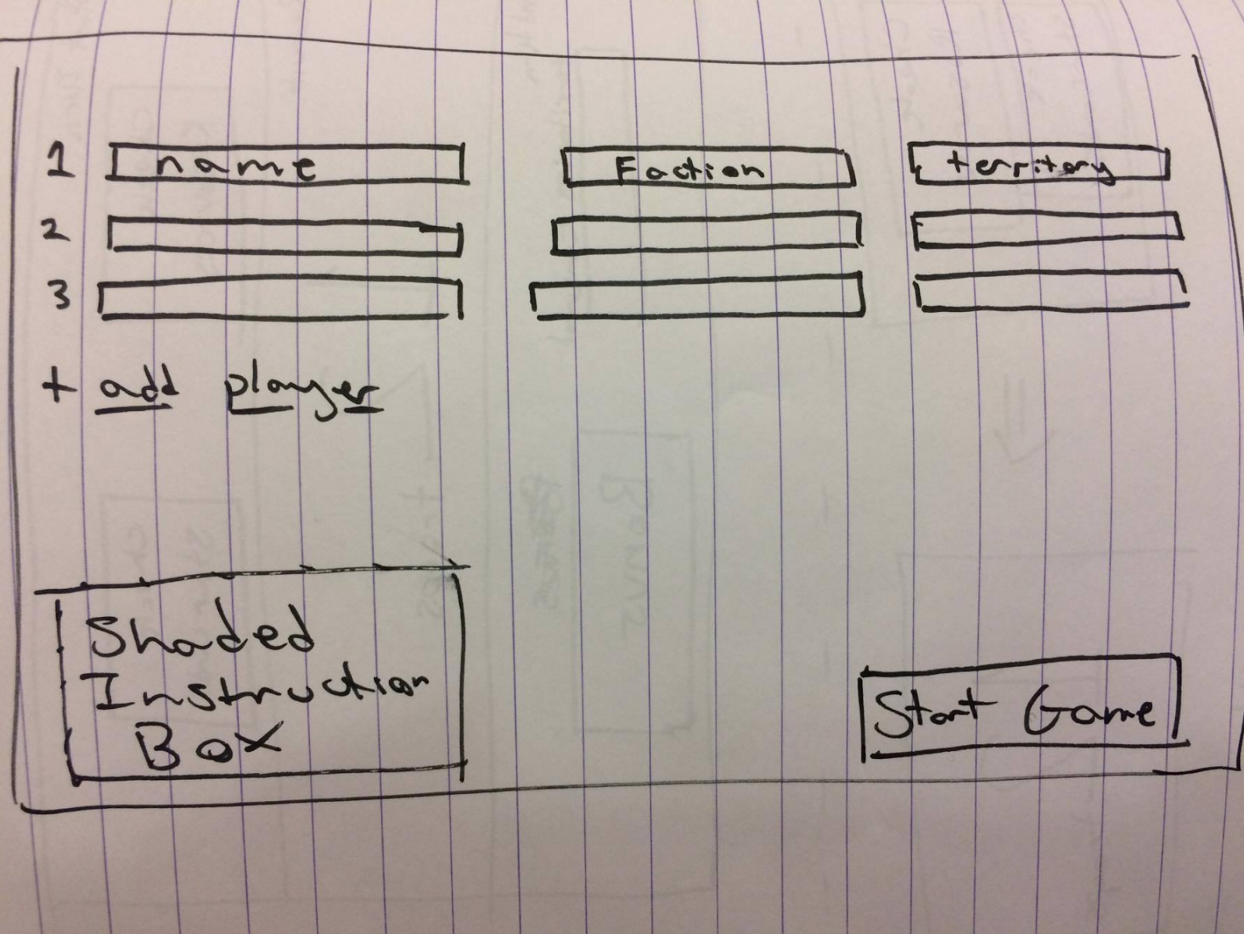 1 name Faction territory
2
3
+ add player
Shaded
Instruction
Box
Start Game